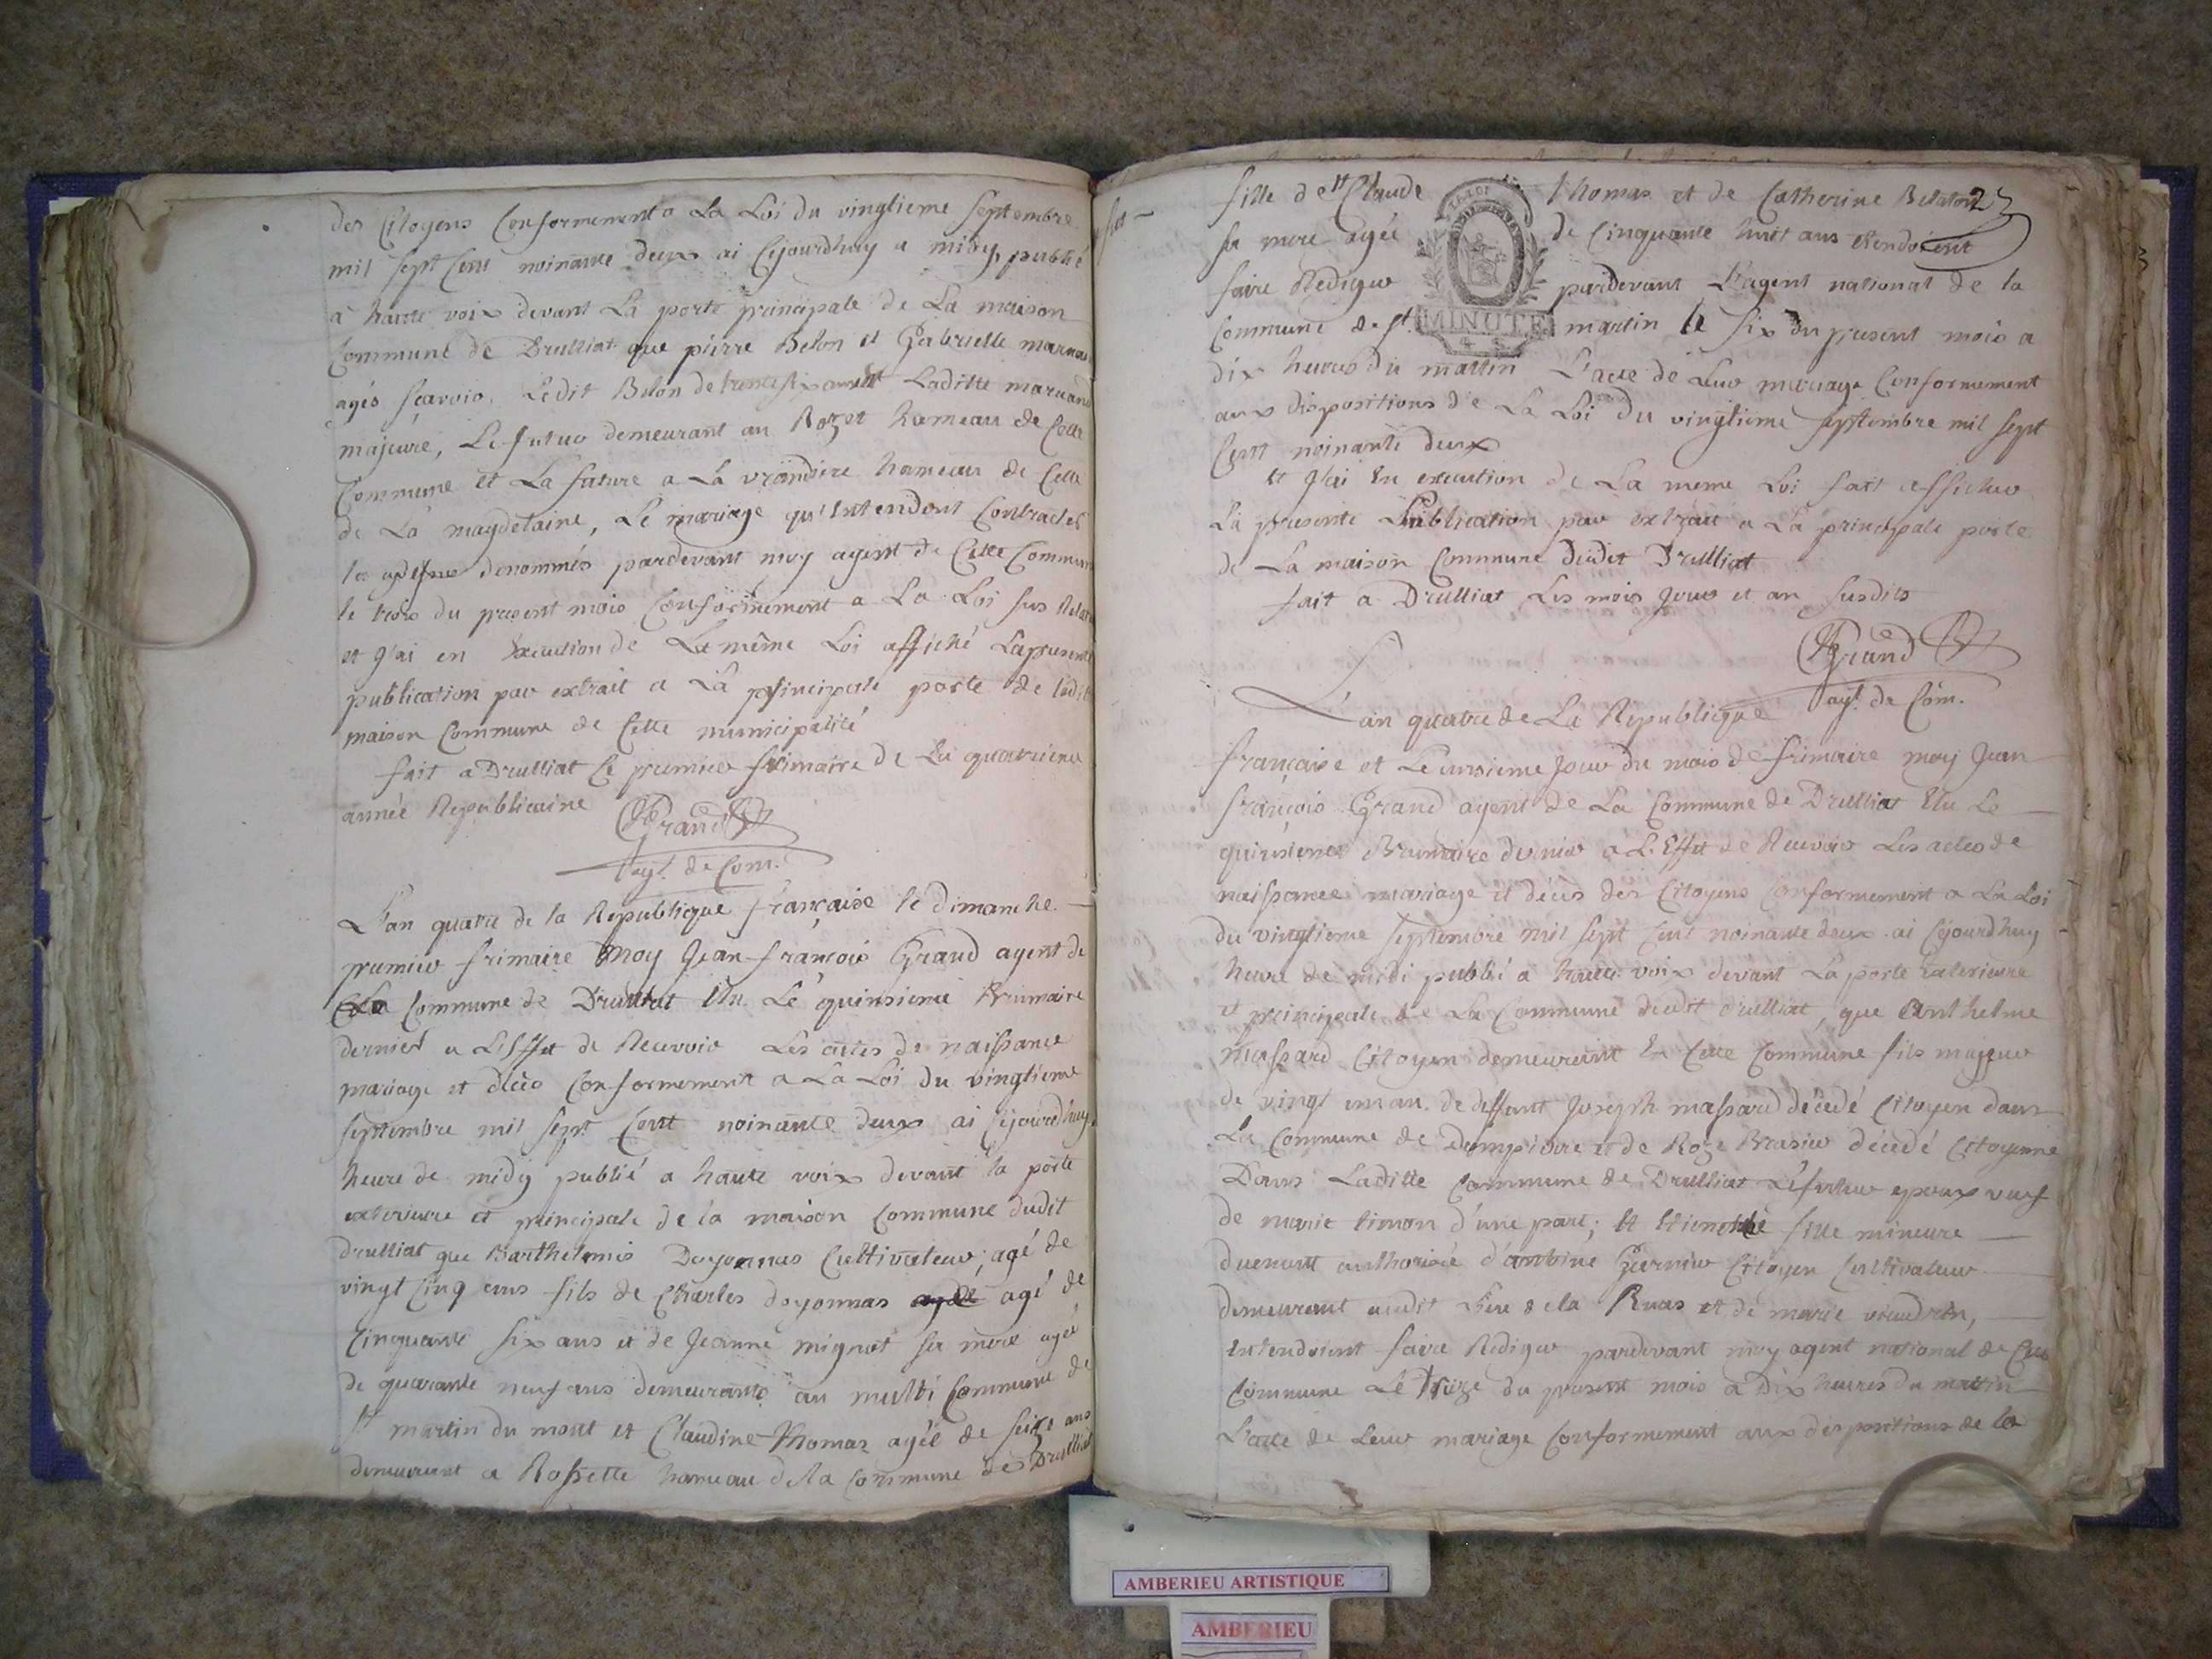 des Citoyens Conformement a La Loi du vingtieme Septembre
mil sept Cent noinante deux ai Cejourdhuy a midy publié
à haute voix devant La porte principale de La maison
Commune de Drulliat que pierre Belon et Gabrielle
agés scavoir Ledit Belon de trente six ans et Laditte
majeure, Le futur demeurant au Rozet hameau de Cette
Commune et La future a La vrandiere hameau de Celle
de La magdelaine, Le mariage qu'Intendent Contracter
les denommés pardevant moy agent de Cette Commune
le trois du present mois Conformement a La Loi sus
et J'ai en Execution de La même Loi affiché La presente
publication par extrait a La principale porte de ladite
maison Commune de Cette municipalité
fait a Drulliat Le premier frimaire de La quatrieme
année Republicaine Grand
agt. de Com.
L'an quatre de la Republique française le dimanche
premier frimaire Moy Jean françois Grand agent de
La Commune de Drulliat Elu Le quinsieme Brumaire
dernier a L'Effet de Recevoir Les actes de naissance
mariage et décès Conformement a La Loi du vingtieme
septembre mil sept Cent noinante deux ai Cejourdhuy
heure de midy publié a haute voix devant la porte
exterieure et principale de la maison Commune dudit
drulliat que Barthelemis Doyonnas Cultivateur, agé de
vingt Cinq ans fils de Charles doyonnas agé de
Cinquante six ans et de Jeanne mignot sa mere agée
de quarante neuf ans demeurants au Commune de
St martin du mont et Claudine Thomas agée de seize ans
demeurant a Rossette hameau de La Commune de Drulliat
fille de Claude Thomas et de Catherine
sa mere agée de Cinquante huit ans
faire Rediger pardevant L'agent national de la
Commune de St. martin le six du present mois a
dix heures du mattin L'acte de Leur mariage Conformement
aux dispositions de La Loi du vingtieme septembre mil sept
Cent noinante deux
Et J'ai En execution de La meme Loi fait afficher
La presente Publication par extrait a La principale porte
de La maison Commune dudit Drulliat
fait a Drulliat Les mois Jour et an susdits
Grand
agt. de Com.
L'an quatre de La Republique
française et Le unsieme Jour du mois de frimaire moy Jean
françois Grand agent de La Commune de Drulliat Elu Le
quinsieme Brumaire dernier a L'Effet de Recevoir Les actes de
naissance mariage et décès des Citoyens Conformement a La Loi
du vingtieme Septembre mil sept Cent noinante deux ai Cejourdhuy
heure de midi publié a haute voix devant La porte exterieure
et principale de La Commune dudit drulliat, que Anthelme
Massard Citoyen demeurant En Cette Commune fils majeur
de vingt un an de deffunt Joseph massard décedé Citoyen dans
La Commune de Dompierre et de Roze Brasier décedé Citoyenne
Dans Laditte Commune de Drulliat Le futur epoux veuf
de marie timon d'une part; Et fille mineure
duement authorisée d'antoine Garnier Citoyen Cultivateur
demeurant audit Lieu de la Ruas et de marie
Entendoient faire Rediger pardevant moy agent national de Cette
Commune Le treize du present mois a Dix heures du mattin
L'acte de Leur mariage Conformement aux dispositions de la
LA LOI
MINUTE
AMBERIEU ARTISTIQUE
AMBERIEU